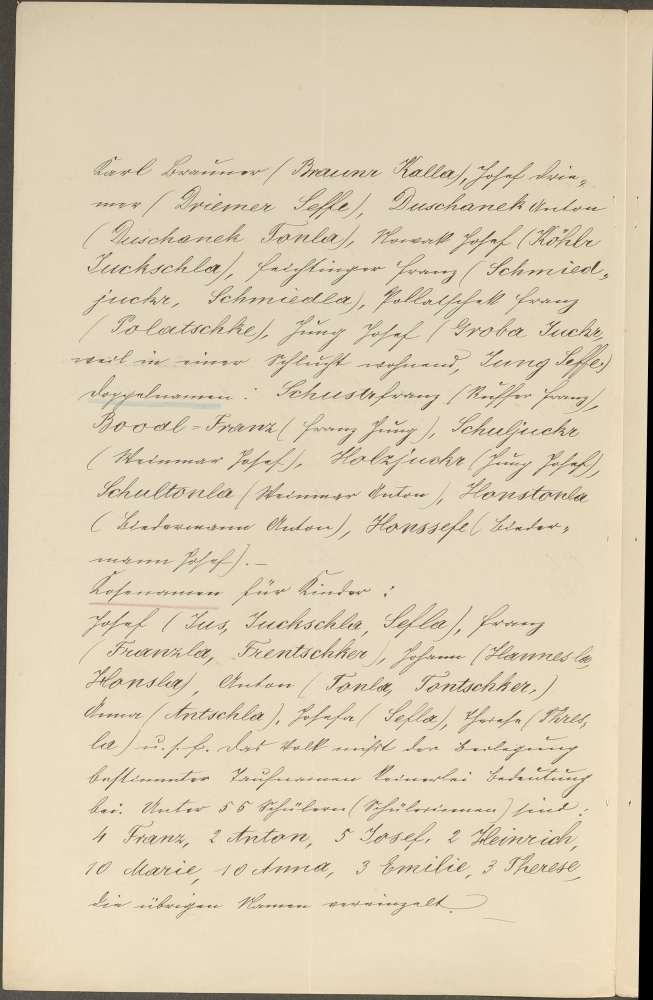 Karl Brauner (Braunr Kalla), Josef Drie-
mer (Driemer Seffe), Duschanek Anton
(Duschanek Tonla), Nowak Josef (Köhlr
Juckschla), Feichtinger Franz (Schmied-
juckr, Schmiedla), Pollatschek Franz
(Polatschke), Jung Josef (Groba Juckr,
weil in einer Schlucht wohnend, Jung Seffe)
Doppelnamen: Schustrfranz (Ruffer Franz),
Boodl-Franz (Franz Jung), Schuljuckr
(Weinmar Josef), Holzjuckr (Jung Josef),
Schultonla (Weinmar Anton), Honstonla
(Biedermann Anton), Honssefe (Bieder-
mann Josef). –
Kosenamen für Kinder:
Josef (Jus, Juckschla, Sefla), Franz
(Franzla, Frentschker), Johann (Hannesla,
Honsla), Anton (Tonla, Tontschker,)
Anna (Antschla), Josefa (Sefla), Therese (Thres-
la) u.s.f. Das Volk mißt der Beilegung
bestimmter Taufnamen keinerlei Bedeutung
bei. Unter 55 Schülern (Schülerinnen) sind:
4 Franz, 2 Anton, 5 Josef, 2 Heinrich,
10 Marie, 10 Anna, 3 Emilie, 3 Therese,
die übrigen Namen vereinzelt.